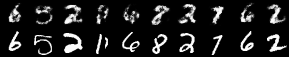 6 5 2 11 6 8 2 7 6 2
6 5 2 11 6 8 2 7 6 2